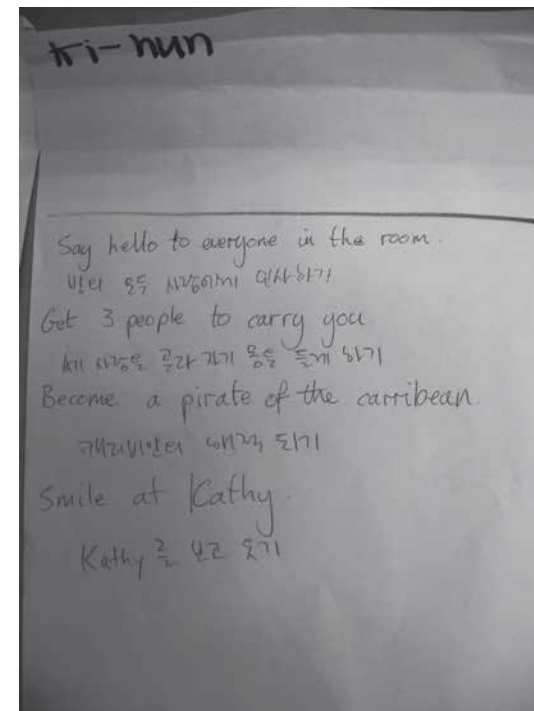 Ki-hun
Say hello to everyone in the room.
모든 사람에게 인사하기
Get 3 people to carry you
세 사람을 골라 자기 몸을 들게 하기
Become a pirate of the carribean.
해적 되기
Smile at Kathy.
Kathy를 보고 웃기